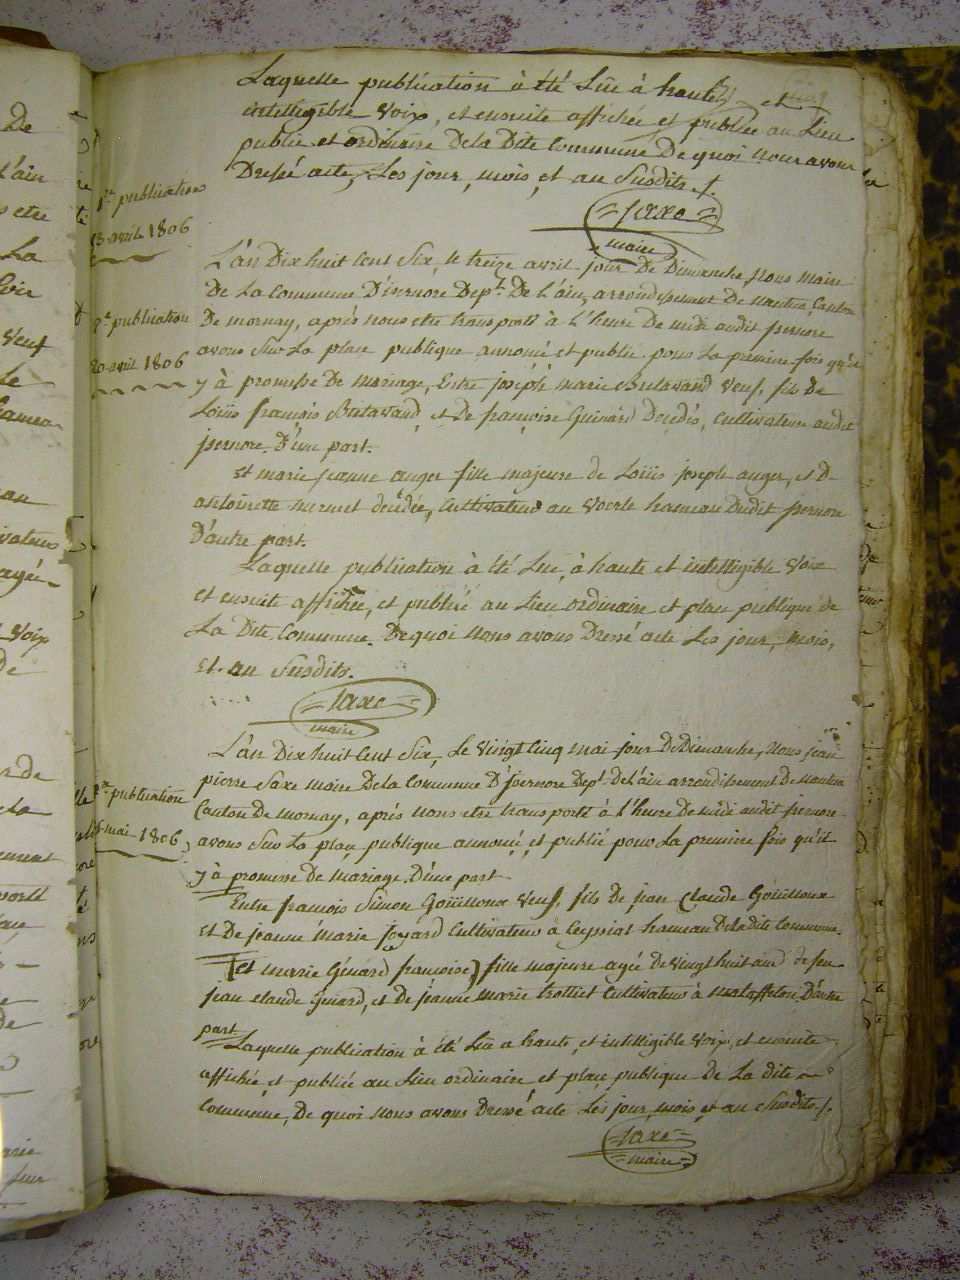 Laquelle publication à été Lüe à haute et
intelligible voix, et ensuite affichée et publiée au Lieu
public et ordinaire dela Dite Commune De quoi nous avons
Dressé acte, Les jour, mois, et an Susdits./.
=Saxe=
maire
1re publication
13 avril 1806
L'an Dix huit Cent Six, le treize avril jour De Dimanche, Nous Maire
De La Commune D'isernore Dept. De L'ain, arrondissement De Nantua, Canton
2e publication
De mornay, après nous etre transporté à L'heure De midi audit isernore
20 avril 1806
avons Sur La place publique annoncé et publié pour La première fois qu'il
y à promesse De Mariage, Entre joseph marie Veuf, fils De
Louis françois et De françoise Guinard Decedés, Cultivateur audit
isernore. D'une part.
Et marie jeanne auger fille majeure de Louis joseph auger, et D
antoinette mermet decédée, Cultivateur au voerle hameau Dudit isernore
D'autre part.
Laquelle publication à été Lüe, à haute et intelligible Voix
et ensuite affichée, et publiée au Lieu ordinaire et place publique de
La Dite Commune. De quoi Nous avons Dressé acte Les jour, mois,
Et an Susdits.
=Saxe=
maire
L'an Dix huit Cent Six, Le Vingt Cinq mai jour DeDimanche, Nous jean
pierre Saxe Maire Dela Commune D'isernore Dept. del'ain arrondissement De Nantua
1re publication
Canton De mornay, après nous etre transporté à l'heure De midi audit isernore
mai 1806
avons Sur La place publique annoncé et publié pour La première fois qu'il
y à promesse de Mariage. D'une part
Entre françois Simon Goüilloux Veuf, fils De jean Claude Goüilloux
Et De jeanne Marie joyard Cultivateur à Ceyssiat hameau Deladite Commune.
(et marie Génard françoise) fille majeure agée De vingt huit ans de feu
jean claude Guiard, et De jeanne marie trolliet Cultivateur à Mataffelon, D'autre
part
Laquelle publication à été Lüe a haute, et intelligible Voix, et ensuite
affichée et publiée au Lieu ordinaire et place publique De La dite
Commune, De quoi nous avons Dressé acte Les jour, mois, et an Susdits./.
=Saxe=
=maire=